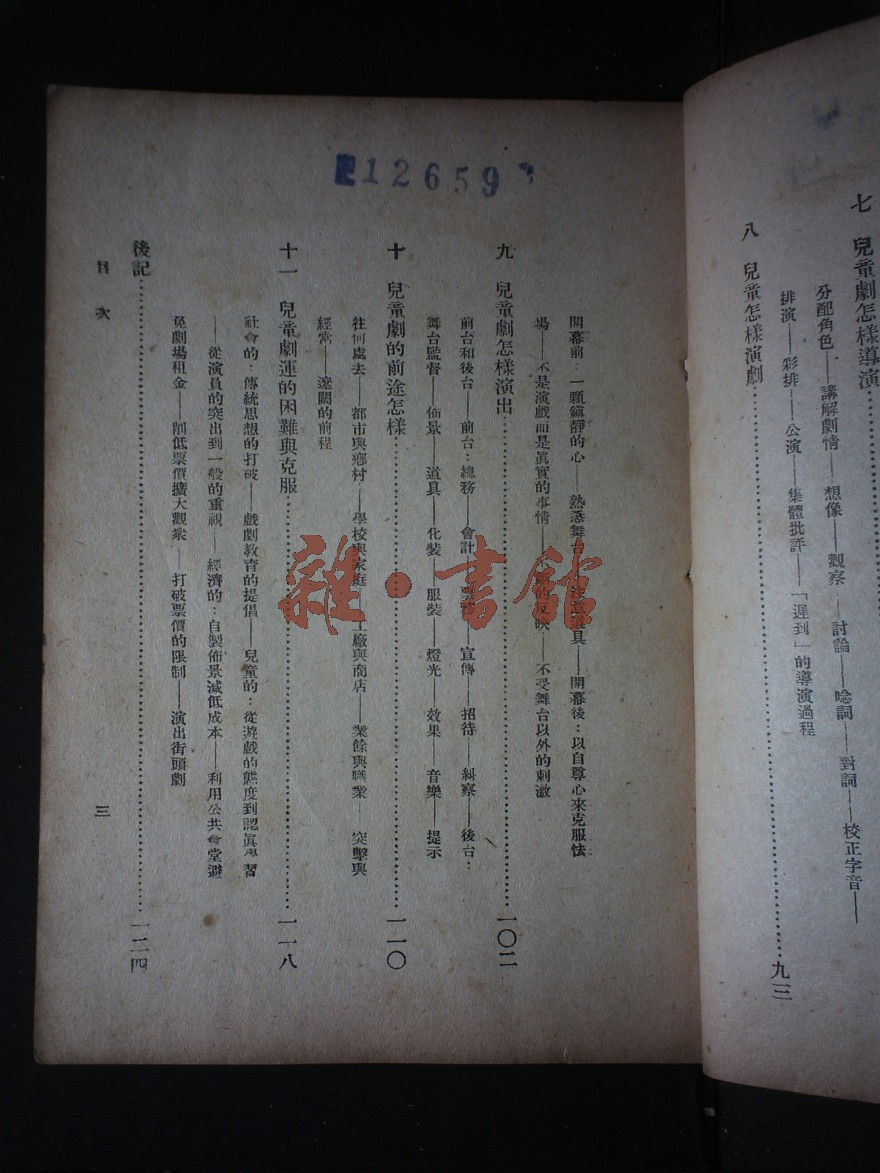 12659
七 兒童劇怎樣導演
分配角色——講解劇情——想像——觀察——討論——唸詞——對詞——校正字音——
排演——彩排——公演——集體批評——「遲到」的導演過程
八 兒童怎樣演劇……九三
開幕前：一顆鎮靜的心——熟悉舞台——注意道具——開幕後：以自尊心來克服怯
場——不是演戲而是眞實的事情——的反映——不受舞台以外的刺激
九 兒童劇怎樣演出……一〇二
前台和後台——前台：總務——會計——宣傳——招待——糾察——後台：
舞台監督——佈景——道具——化裝——服裝——燈光——效果——音樂——提示
十 兒童劇的前途怎樣……一一〇
往何處去——都市與鄉村——學校與家庭——工廠與商店——業餘與職業——突擊與
經常——遼闊的前程
十一 兒童劇運的困難與克服……一一八
社會的：傳統思想的打破——戲劇教育的提倡——兒童的：從遊戲的態度到認眞學習
——從演員的突出到一般的重視——經濟的：自製佈景減低成本——利用公共會堂避
免劇場租金——削低票價擴大觀衆——打破票價的限制——演出街頭劇
後記……一二四
目次
三
雜·書館